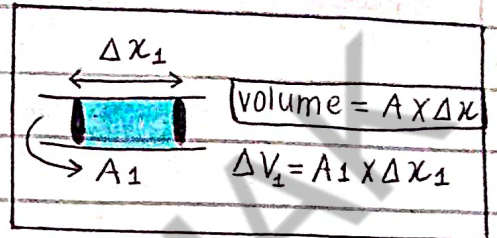 Δx₁
volume = A × Δx
A₁
ΔV₁ = A₁ × Δx₁